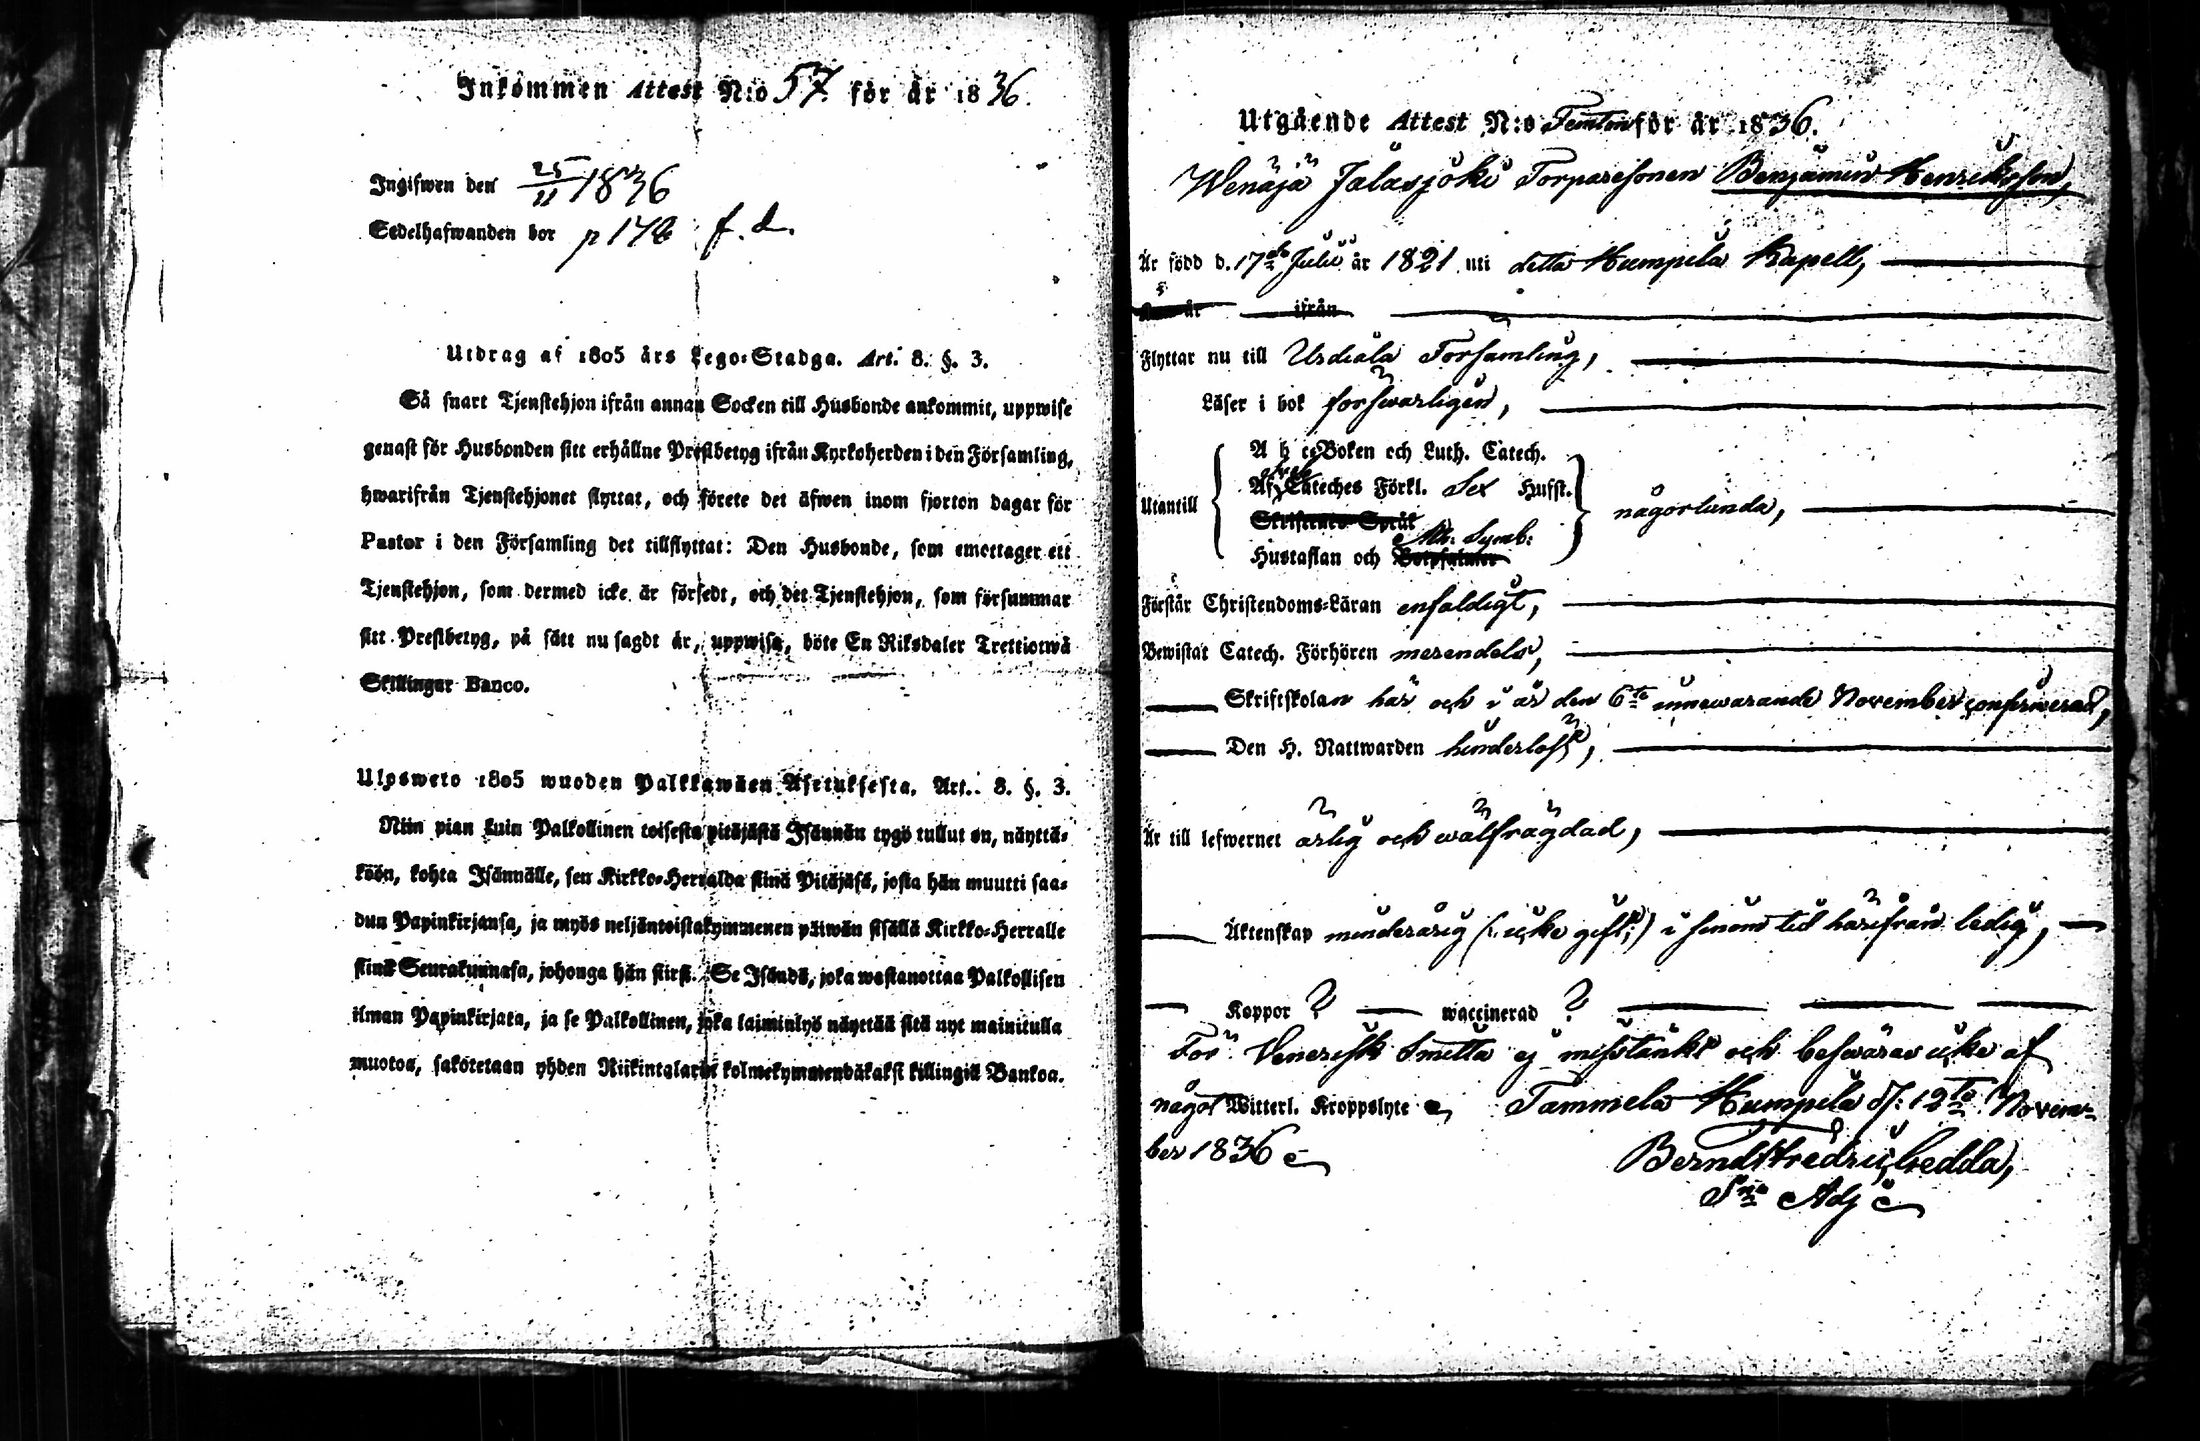 Inkommen Attest N:o 57. för år 1836.
Ingifwen den 25/11 1836
Sedelhafwanden bor p 174 f. d.
Utdrag af 1805 års Lego-Stadga. Art. 8. §. 3.
Så snart Tjenstehjon ifrån annan Socken till Husbonde ankommit, uppwise
genast för Husbonden sitt erhållne Prestbetyg ifrån Kyrkoherden i den Församling,
hwarifrån Tjenstehjonet flyttat, och förete det äfwen inom fjorton dagar för
Pastor i den Församling det tillflyttat: Den Husbonde, som emottager ett
Tjenstehjon, som dermed icke är försedt, och det Tjenstehjon, som försummar
sitt Prestbetyg, på sätt nu sagdt är, uppwisa, böte En Riksdaler Trettiotwå
Skillingar Banco.
Ulosweto 1805 wuoden Palkkawäen Asetuksesta. Art. 8. §. 3.
Niin pian kuin Palkollinen toisesta pitäjästä Isännän tygö tullut on, näyttä-
köön, kohta Isännälle, sen Kirkko-Herralda siinä Pitäjäsä, josta hän muutti saa-
dun Papinkirjansa, ja myös neljäntoistakymmenen päiwän sisällä Kirkko-Herralle
siinä Seurakunnasa, johonga hän siirsi. Se Isändä, joka wastanottaa Palkollisen
ilman Papinkirjata, ja se Palkollinen, joka laiminlyö näyttää sitä nyt mainitulla
muotoa, sakotetaan yhden Riikintalarin kolmekymmendäkaksi killingiä Bankoa.
Utgående Attest N:o Femton för år 1836.
Wenäjä Jalasjoki Torparesonen Benjamin Henriksson,
Är född d. 17de Julii år 1821 uti detta Humpila Kapell,
år ifrån
Flyttar nu till Urdiala Församling,
Läser i bok försvarligen,
A b c Boken och Luth. Catech.
Af Cateches Förkl. Sex Hufst.
Utantill Skriftenes Språk någorlunda,
Ath. Symb:
Hustaflan och
Förstår Christendoms-Läran enfaldigt,
Bewistat Catech. Förhören merendels,
Skriftskolan här och i år den 6te innewarande November confirmerad,
Den H. Nattwarden hinderlöst,
Är till lefwernet ärlig och wälfrägdad,
Äktenskap minderårig (: icke gift :) i sinom tid härifrån ledig,
Koppor ? waccinerad ?
För Venerisk Smitta ej misstänkt och beswäras icke af
något Witterl. Kroppslyte Tammela Humpila d: 12te Novem-
ber 1836
Berndt Fredric Ledda,
Sne Adj